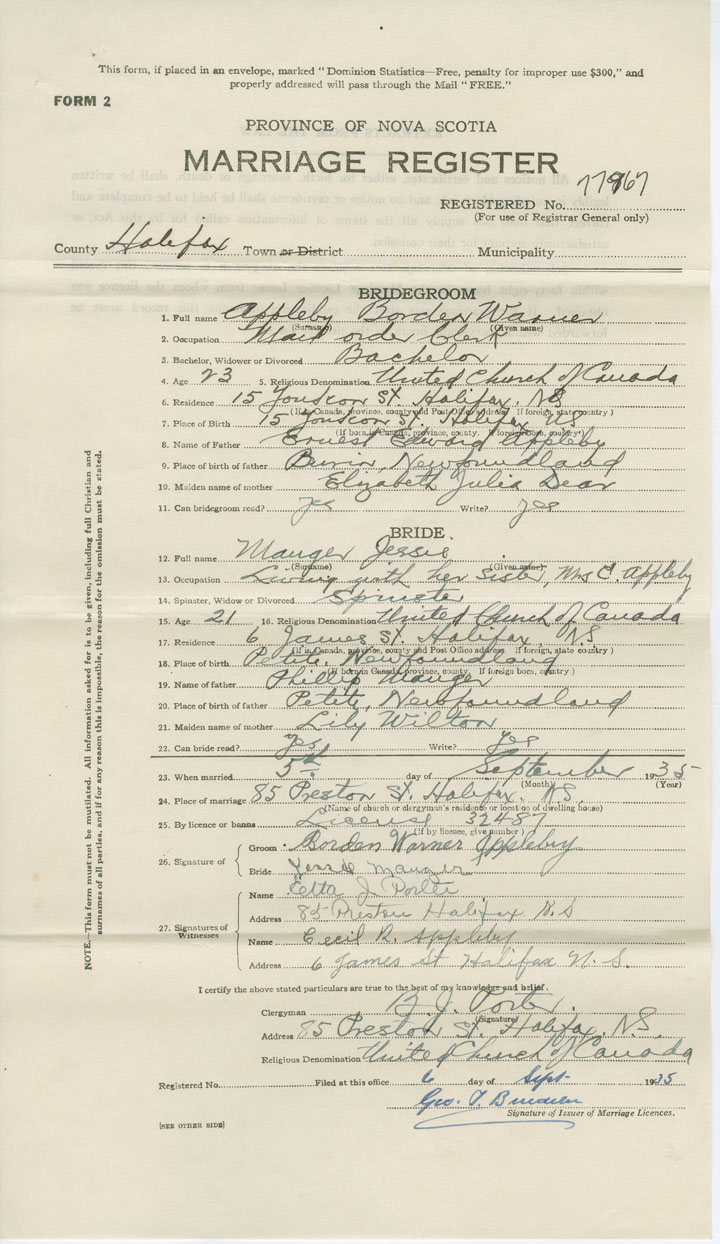 This form, if placed in an envelope, marked "Dominion Statistics—Free, penalty for improper use $300," and
properly addressed will pass through the Mail "FREE."
FORM 2
PROVINCE OF NOVA SCOTIA
MARRIAGE REGISTER
REGISTERED No.
(For use of Registrar General only)
County Halifax Town or District Municipality
BRIDEGROOM
1. Full name Appleby Borden Warner
(Surname) (Given name)
2. Occupation Mail order Clerk
3. Bachelor, Widower or Divorced Bachelor
4. Age 23 5. Religious Denomination United Church of Canada
6. Residence 15 St. Halifax, NS
(If in Canada, province, county and Post Office address. If foreign, state country)
7. Place of Birth 15 St. Halifax N.S.
(If born in Canada, province, county. If foreign born, country)
8. Name of Father Ernest Edward Appleby
9. Place of birth of father Burin, Newfoundland
10. Maiden name of mother Elizabeth Julia Dear
11. Can bridegroom read? yes Write? yes
BRIDE.
12. Full name Mauger Jessie
(Surname) (Given name)
13. Occupation Living with her sister, Mrs C. Appleby
14. Spinster, Widow or Divorced Spinster
15. Age 21 16. Religious Denomination United Church of Canada
17. Residence 6 James St. Halifax, N.S.
(If in Canada, province, county and Post Office address. If foreign, state country)
18. Place of birth Petite, Newfoundland
(If born in Canada, province, county. If foreign born, country)
19. Name of father Phillip Mauger
20. Place of birth of father Petite, Newfoundland
21. Maiden name of mother Lily Wilton
22. Can bride read? Yes Write? Yes
23. When married 5th day of September 1935
(Month) (Year)
24. Place of marriage 85 Preston St. Halifax. N.S.
(Name of church or clergyman's residence or location of dwelling house)
25. By licence or banns License 32487
(If by licence, give number)
26. Signature of
Groom Borden Warner Appleby
Bride Jessie Mauger
27. Signatures of Witnesses
Name Etta J. Porter
Address 85 Preston Halifax N.S
Name Cecil R. Appleby
Address 6 James St Halifax N.S.
I certify the above stated particulars are true to the best of my knowledge and belief.
Clergyman B. J. Porter.
(Signature)
Address 85 Preston St. Halifax, N.S.
Religious Denomination United Church of Canada
Registered No. Filed at this office 6 day of Sept 1935
Geo. T.
Signature of Issuer of Marriage Licences.
[SEE OTHER SIDE]
NOTE.—This form must not be mutilated. All information asked for is to be given, including full Christian and
surnames of all parties, and if for any reason this is impossible, the reason for the omission must be stated.